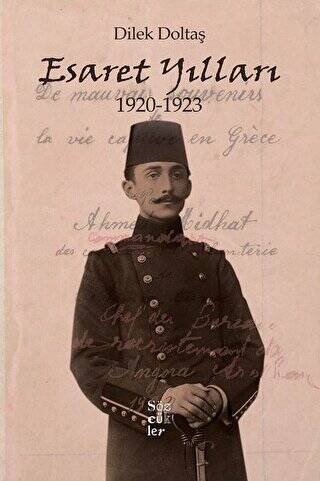 Dilek Doltaş
Esaret Yılları
1920-1923
De mauvais souvenirs
de
la vie captive en Grèce
Ahmed Midhat
Commandant
des
Chef du Bureau
de recrutement de
Angora
Söz
cük
ler